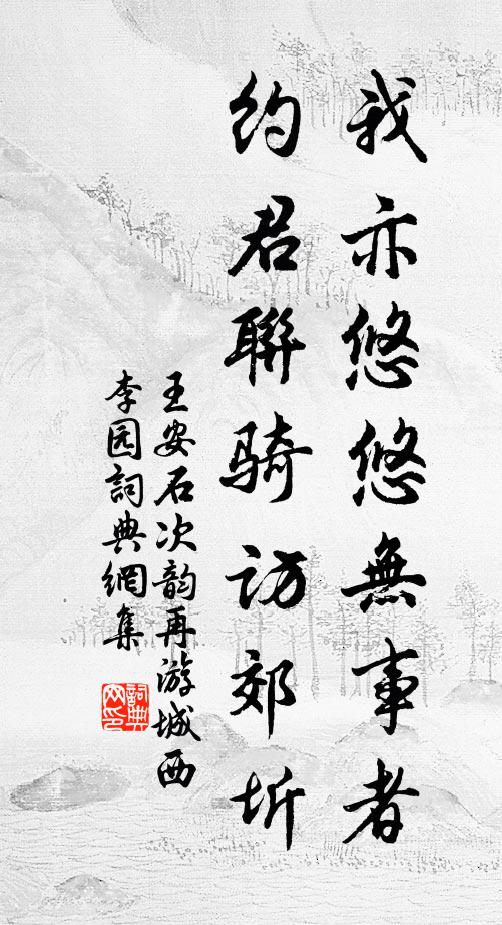 我亦悠悠無事者
約君聯騎訪郊圻
王安石次韵再游城西
李园詞典網集
詞典
网印